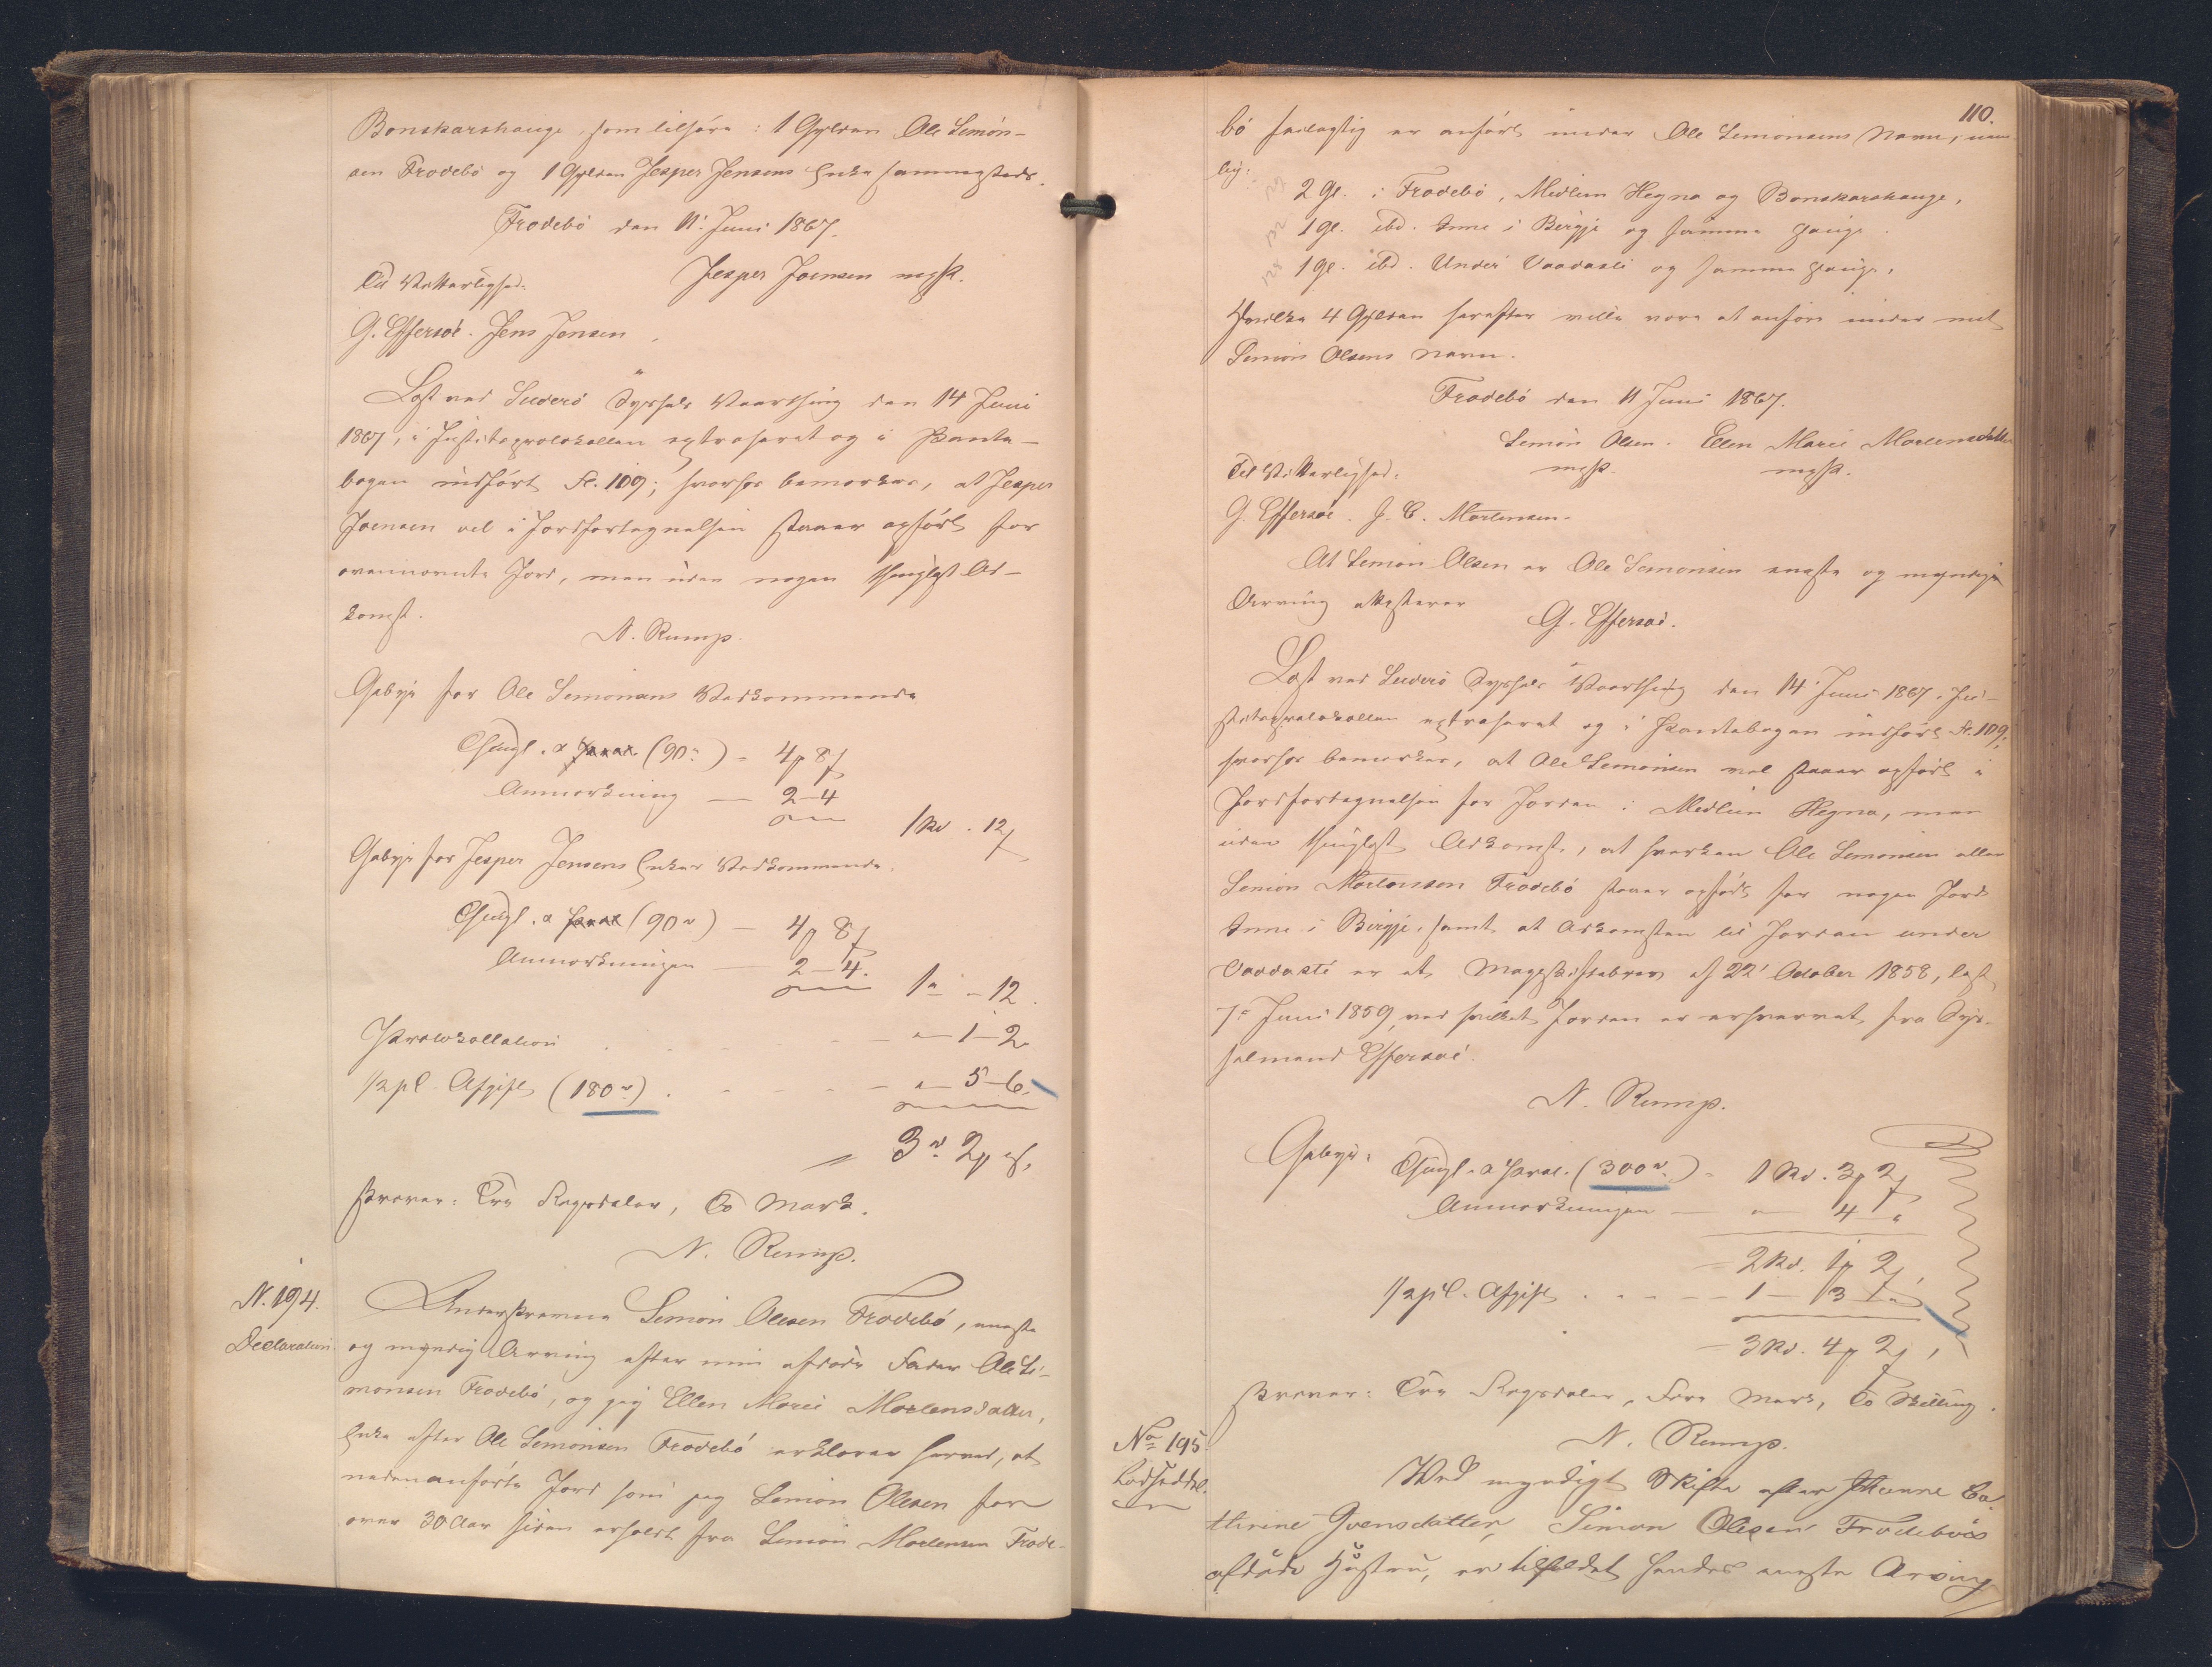 Bonskarshauge, som tilhøre: 1 Gylden Ole Simon-
sen Frodebö og 1 Gylden Jesper Jensens Enke sammesteds.
Frodebö den 11' Juni 1867.
Jesper Joensen mgH.
Til Vitterlighed:
G. Effersöe. Jens Jensen
Læst ved Suderö Syssels Vaarthing den 14 Juni
1867, i Justitsprotokollen extraheret og i Pante-
bogen indført Fl. 109; hvorhos bemærkes, at Jesper
Joensen vel i Jordfortegnelsen staaer opført for
ovennævnte Jord, men uden nogen thinglæst Ad-
komst.
N. Rump.
Gebyr for Ole Simonsens Vedkommende
Thingl. a (90rd) - 4 8
Anmærkning — 2-4
1 Rd. 12
Gebyr for Jesper Jensens Enkes Vedkommende.
Thingl. a (90rd) - 4 8
Anmærkningen — 2-4.
1" - 12.
Protokollation - 1-2
1/2 pC Afgift (180rd) . - 5-6.
3rd 2
skriver: Tre Rigsdaler, To Mark.
N. Rump.
N. 194.
Declaration
Underskrevne Simon Olesen Frodebö, eneste
og myndig Arving efter min afdøde Fader Ole Si-
monsen Frodebö, og jeg Ellen Marie Mortensdatter,
Enke efter Ole Simonsen Frodebö erklærer herved, at
nedenanførte Jord som jeg Simon Olesen for
over 30 Aar siden erholdt fra Simon Mortensen Frode-
110.
bö feilagtig er anført under Ole Simonsens Navn, nem
lig:
2 Gl. i Frodebö, Midlum Hegna og Bonskarshauge,
1 gl. ibd. Inni i Bergje og samme Hauge.
1 gl. ibd. Under Vaadasti og samme Hauge,
Hvilke 4 Gylden herefter ville være at anføre under mit
Simon Olsens Navn.
Frodebö den 11 Juni 1867.
Simon Olsen. Ellen Marie Mortensdatter
mgH. mgH.
Til Vitterlighed.
G. Effersöe. J. C. Mortensen.
At Simon Olsen er Ole Simonsen eneste og myndige
Arving attesterer
G. Effersöe.
Læst ved Suderö Syssels Vaarthing den 14' Juni 1867, Ju-
stitsprotokollen extraheret og i Pantebogen indført Fl. 109,
hvorhos bemærkes, at Ole Simonsen vel staaer opført i
Jordfortegnelsen for Jorden i Midlum Hegna, men
uden thinglæst Adkomst, at hverken Ole Simonsen eller
Simon Mortensen Frodebö staaer opført for nogen Jord
Inni i Bergje, samt at Adkomsten til Jorden under
Vaadasti er et Mageskiftebrev af 22' October 1858, læst
7' Juni 1859, ved hvilket Jorden er erhvervet fra Sys-
selmand Effersöe.
N. Rump.
Gebyr: Thingl. a Prot. (300rd) - 1 Rd. 3 2
Anmærkningen — 4
2 Rd. 1 2
1/2 pC. Afgift . . . . 1 — 3
3 Rd. 4 2
skriver: Tre Rigsdaler, Fire Mark, To Skilling.
N. Rump.
No 195.
Lodseddel.
Ved myndigt Skifte efter Johanne Ca-
thrine Joensdatter, Simon Olesen Frodeböes
afdøde Hustru, er tilfaldet hendes eneste Arving